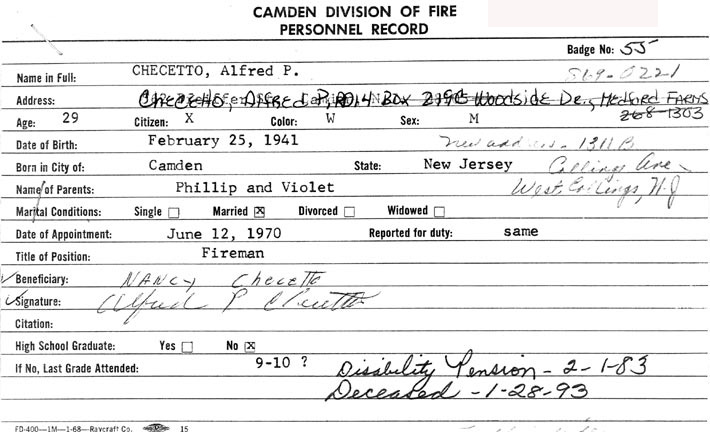 CAMDEN DIVISION OF FIRE
PERSONNEL RECORD
Badge No: 55
Name in Full: CHECETTO, Alfred P. 869-0221
Address: CHECETTO, Alfred P, RD.4 Box 219C Woodside De., Medford Farms
268-1303
Age: 29 Citizen: X Color: W Sex: M
Date of Birth: February 25, 1941 New address - 1311 B
Born in City of: Camden State: New Jersey Collings Ave
Name of Parents: Phillip and Violet West Collings, N.J
Marital Conditions: Single Married X Divorced Widowed
Date of Appointment: June 12, 1970 Reported for duty: same
Title of Position: Fireman
Beneficiary: Nancy Checetto
Signature: Alfred P Checetto
Citation:
High School Graduate: Yes No X
If No, Last Grade Attended: 9-10 ? Disability Pension - 2-1-83
Deceased -1-28-93
FD-400—1M—1-68—Raycraft Co. 15